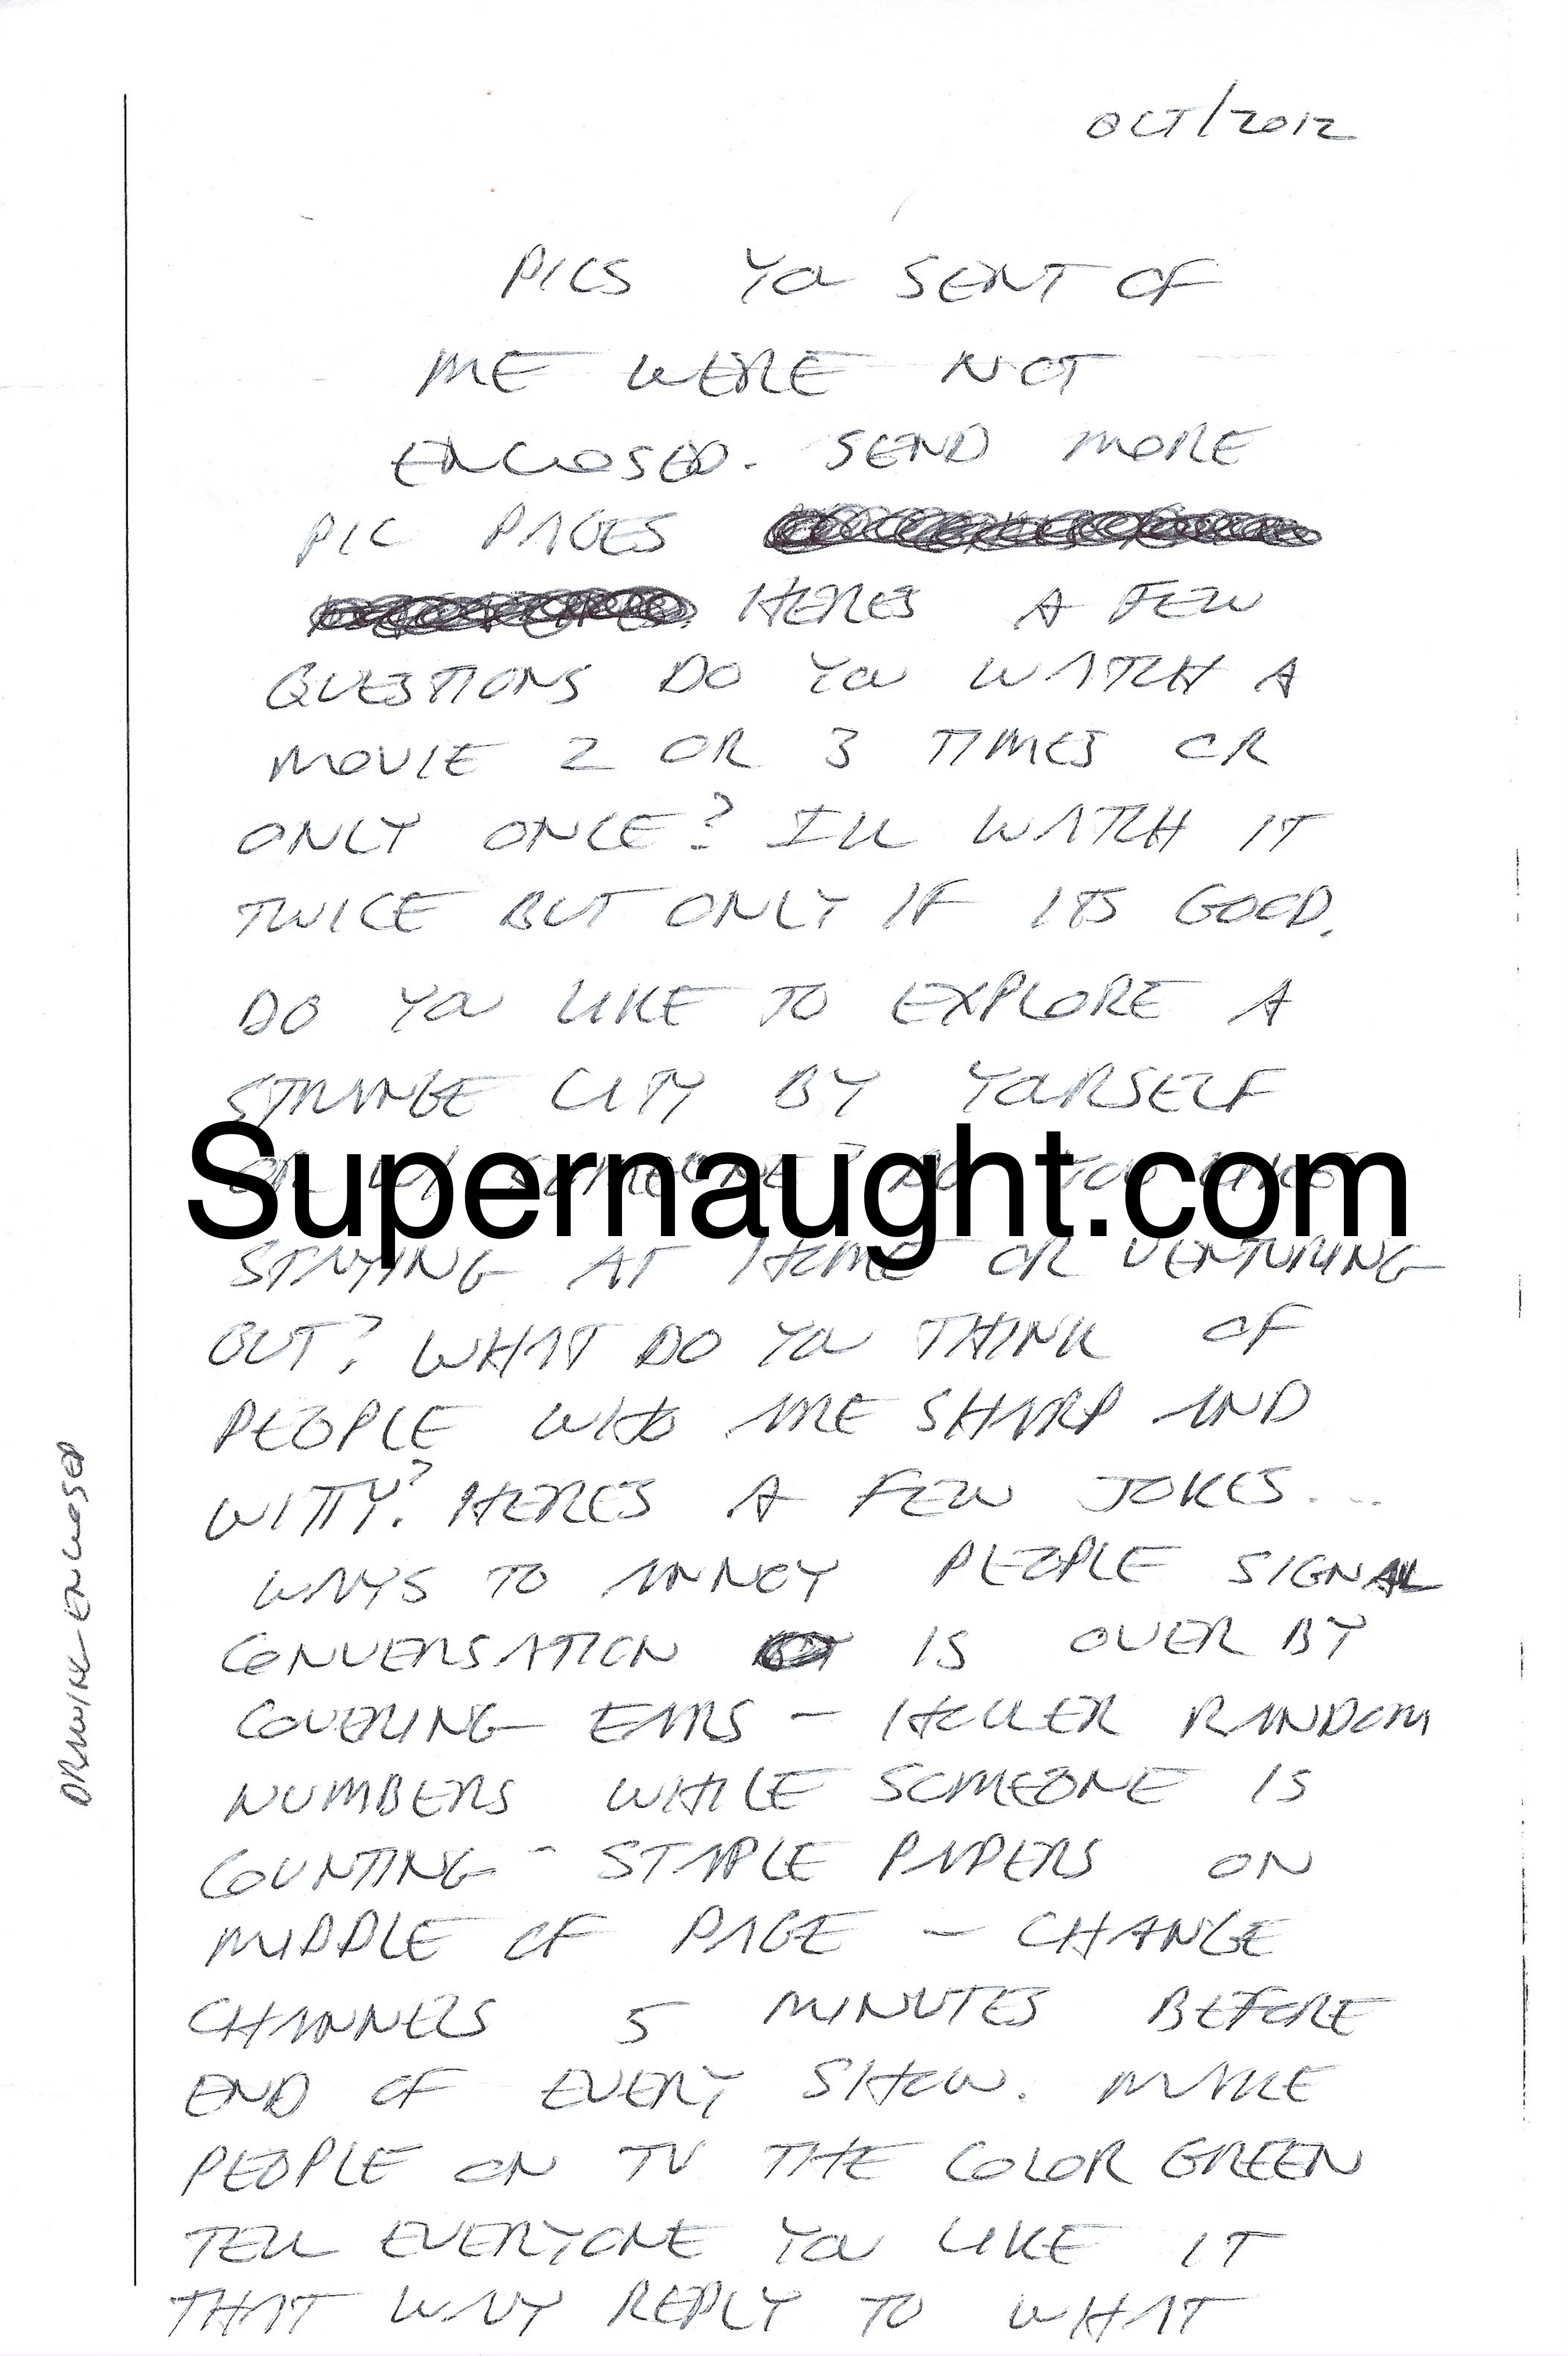 OCT/2012
PICS YOU SENT OF
ME WERE NOT
ENCLOSED. SEND MORE
PIC PAGES
HERES A FEW
QUESTIONS DO YOU WATCH A
MOVIE 2 OR 3 TIMES OR
ONLY ONCE? ILL WATCH IT
TWICE BUT ONLY IF ITS GOOD.
DO YOU LIKE TO EXPLORE A
STRANGE CITY BY YOURSELF
OR W/ SOMEONE? DO YOU LIKE
Supernaught.com
STAYING AT HOME OR VENTURING
OUT? WHAT DO YOU THINK OF
PEOPLE WHO ARE SHARP AND
WITTY? HERES A FEW JOKES...
WAYS TO ANNOY PEOPLE SIGNAL
CONVERSATION IS OVER BY
COVERING EARS - HOLLER RANDOM
NUMBERS WHILE SOMEONE IS
COUNTING - STAPLE PAPERS ON
MIDDLE OF PAGE - CHANGE
CHANNELS 5 MINUTES BEFORE
END OF EVERY SHOW. MAKE
PEOPLE ON TV THE COLOR GREEN
TELL EVERYONE YOU LIKE IT
THAT WAY REPLY TO WHAT
DRAWING ENCLOSED